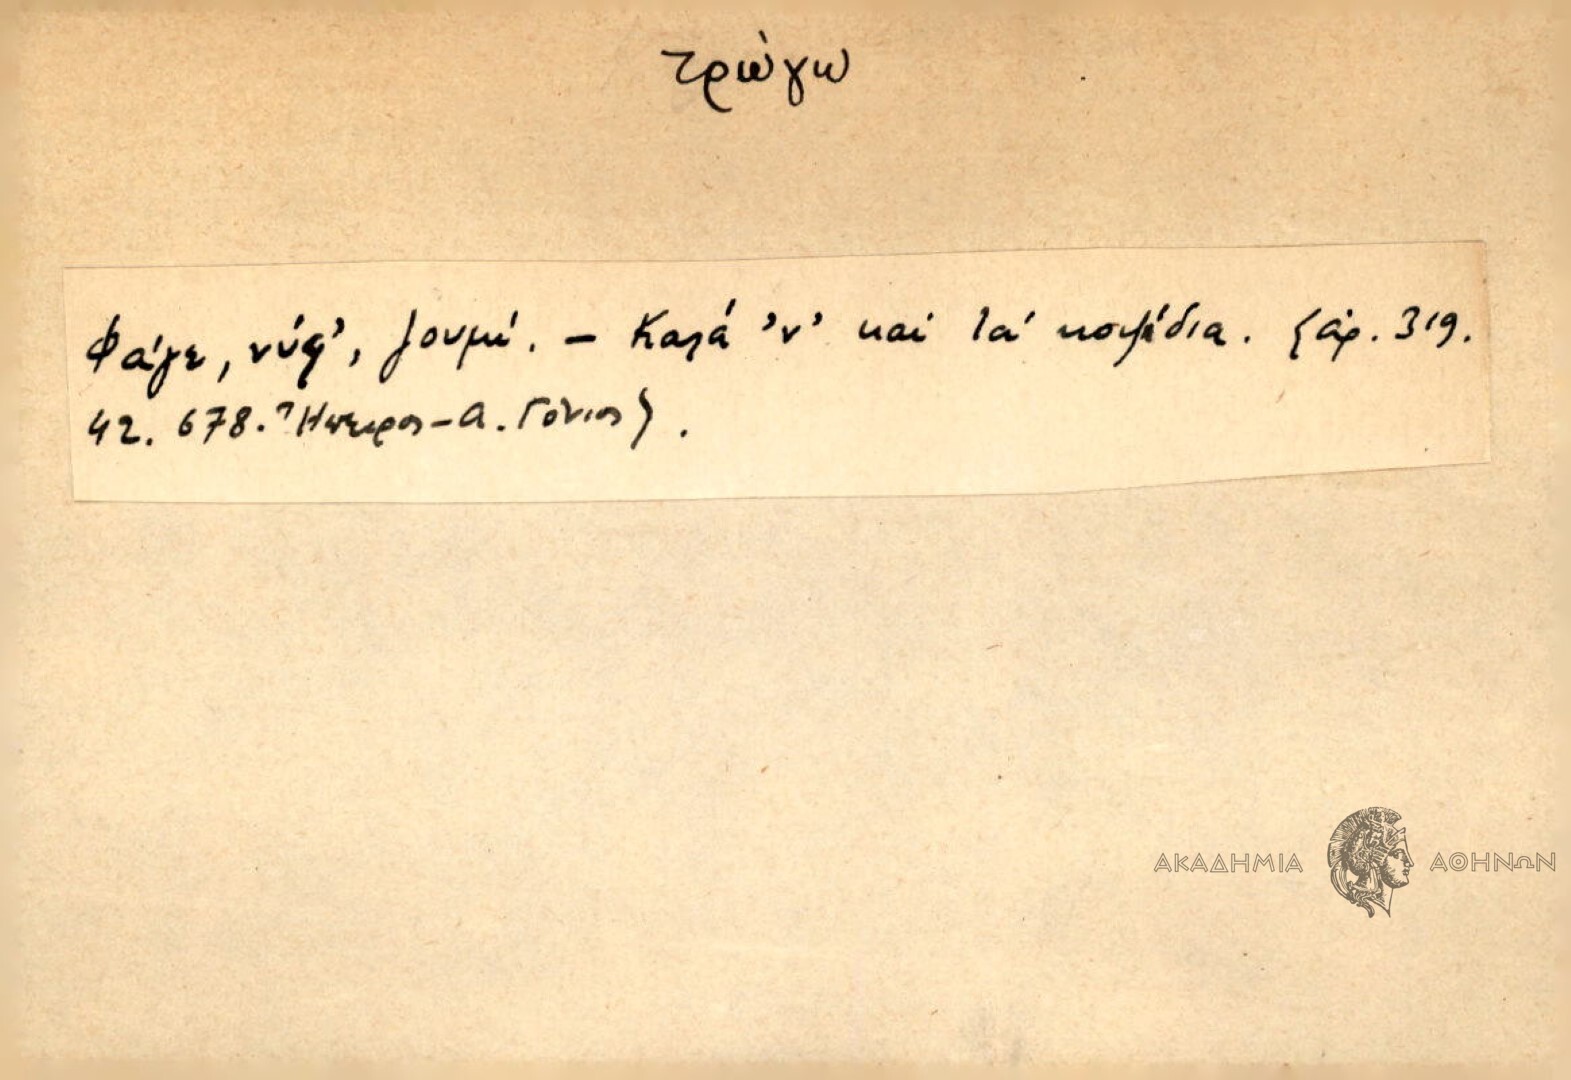 τρώγω
Φάγε, νύφ', ζουμί. – Καλά 'ν' καί τά κοψίδια. {ἀρ. 319.
42. 678. Ἤπειρος – Α. Γόνιος}.
ΑΚΑΔΗΜΙΑ ΑΘΗΝΩΝ